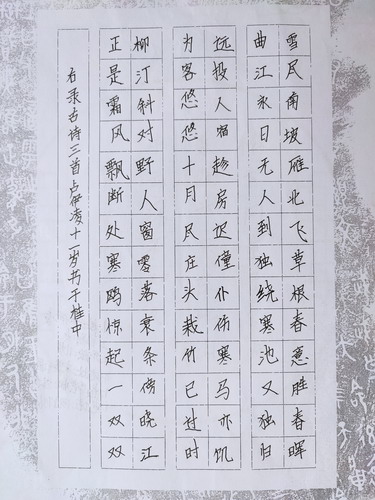 雪尽南坡雁北飞草根春意胜春晖
曲江永日无人到独绕寒池又独归
远投人宿趁房迟僮仆伤寒马亦饥
为客悠悠十月尽庄头栽竹已过时
柳汀斜对野人窗零落衰条傍晓江
正是霜风飘断处寒鸥惊起一双双
右录古诗三首占伊凌十一岁书于桂中